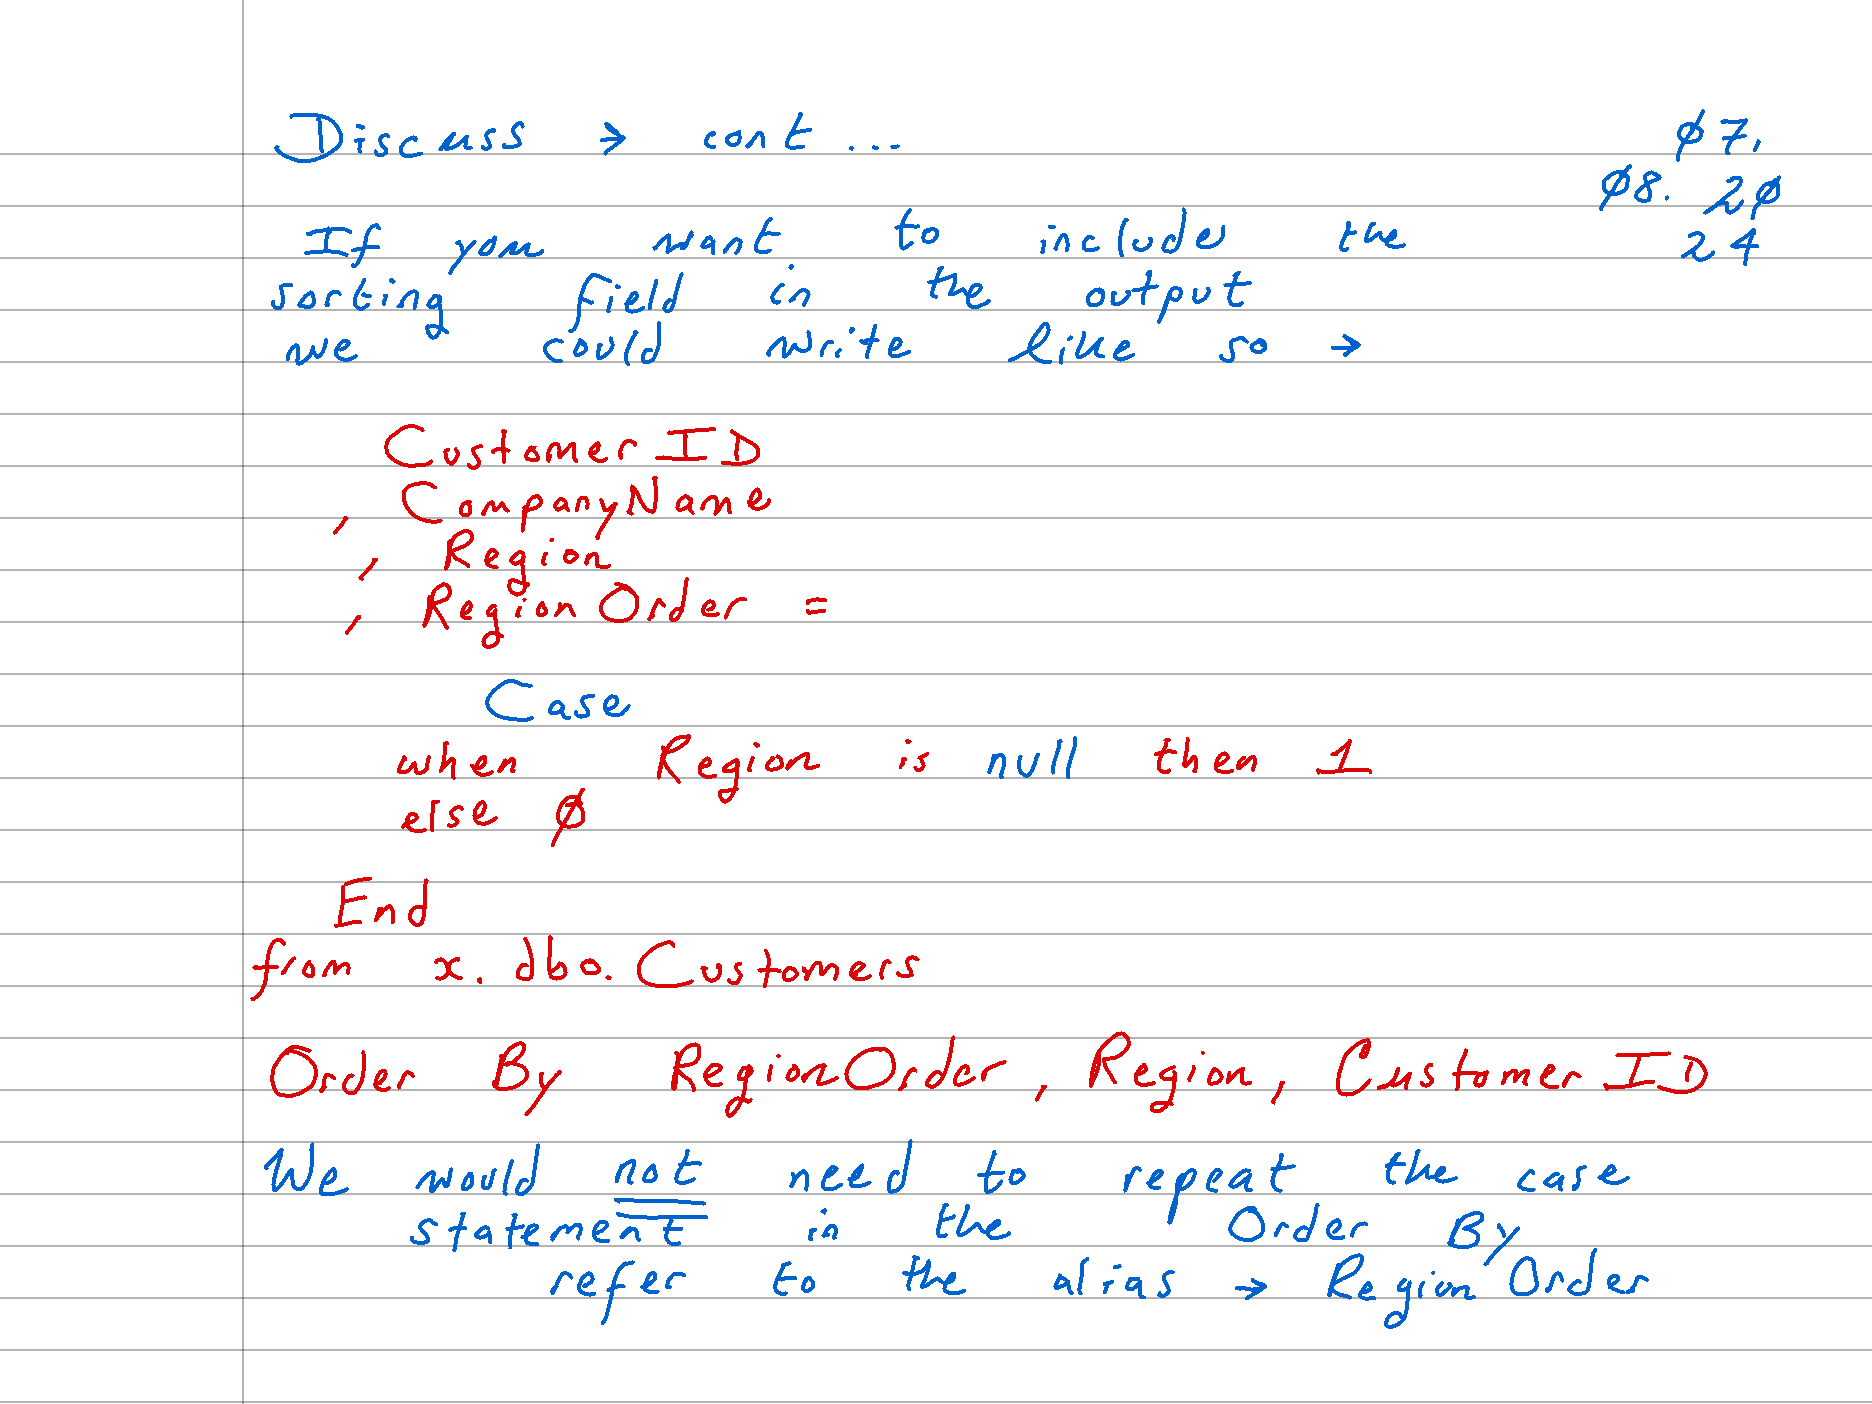 Discuss → cont ...
Ø7.
Ø8. 2Ø
24
If you want to include the
sorting field in the output
we could write like so →
CustomerID
, CompanyName
, Region
, RegionOrder =
Case
when Region is null then 1
else Ø
End
from x.dbo.Customers
Order By RegionOrder, Region, CustomerID
We would not need to repeat the case
statement in the Order By
refer to the alias → RegionOrder